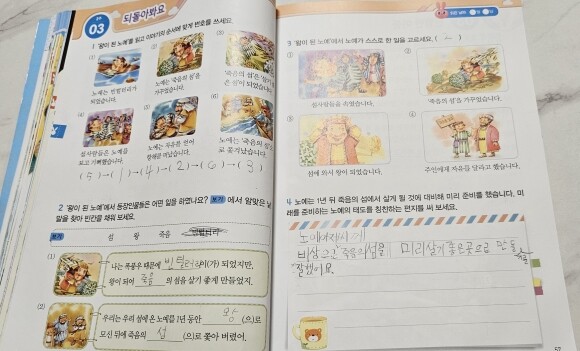 03
되돌아봐요
1 '왕이 된 노예'를 읽고 이야기의 순서에 맞게 번호를 쓰세요.
(1)
(2)
(3)
노예는 빈털터리가
되었습니다.
노예는 '죽음의 섬'을
가꾸었습니다.
(4)
(5)
(6)
섬사람들은 노예를
보고 기뻐했습니다.
노예는 자유를 얻어
노예는 '죽음의 섬'으
로 쫓겨났습니다.
(5)→(1)→(4)→(2)→(6)→(3)
2 '왕이 된 노예'에서 등장인물들은 어떤 일을 하였나요? 보기 에서 알맞은 낱
말을 찾아 빈칸을 채워 보세요.
보기 섬 왕 죽음 빈털터리
(1)
나는 폭풍우 때문에 빈털터리(이)가 되었지만,
왕이 되어 죽음 의 섬을 살기 좋게 만들었지.
(2)
우리는 우리 섬에 온 노예를 1년 동안 왕 (으)로
모신 뒤에 죽음의 섬 (으)로 쫓아 버렸어.
3 '왕이 된 노예'에서 노예가 스스로 한 일을 고르세요. ( )
①
②
섬사람들을 속였습니다.
'죽음의 섬'을 가꾸었습니다.
③
④
섬에 와서 왕이 되었습니다.
주인에게 자유를 달라고 했습니다.
4 노예는 1년 뒤 죽음의 섬에서 살게 될 것에 대비해 미리 준비를 했습니다. 미
래를 준비하는 노예의 태도를 칭찬하는 편지를 써 보세요.
죽음의 섬을 미리 살기 좋은 곳으로
잘했어요.
57